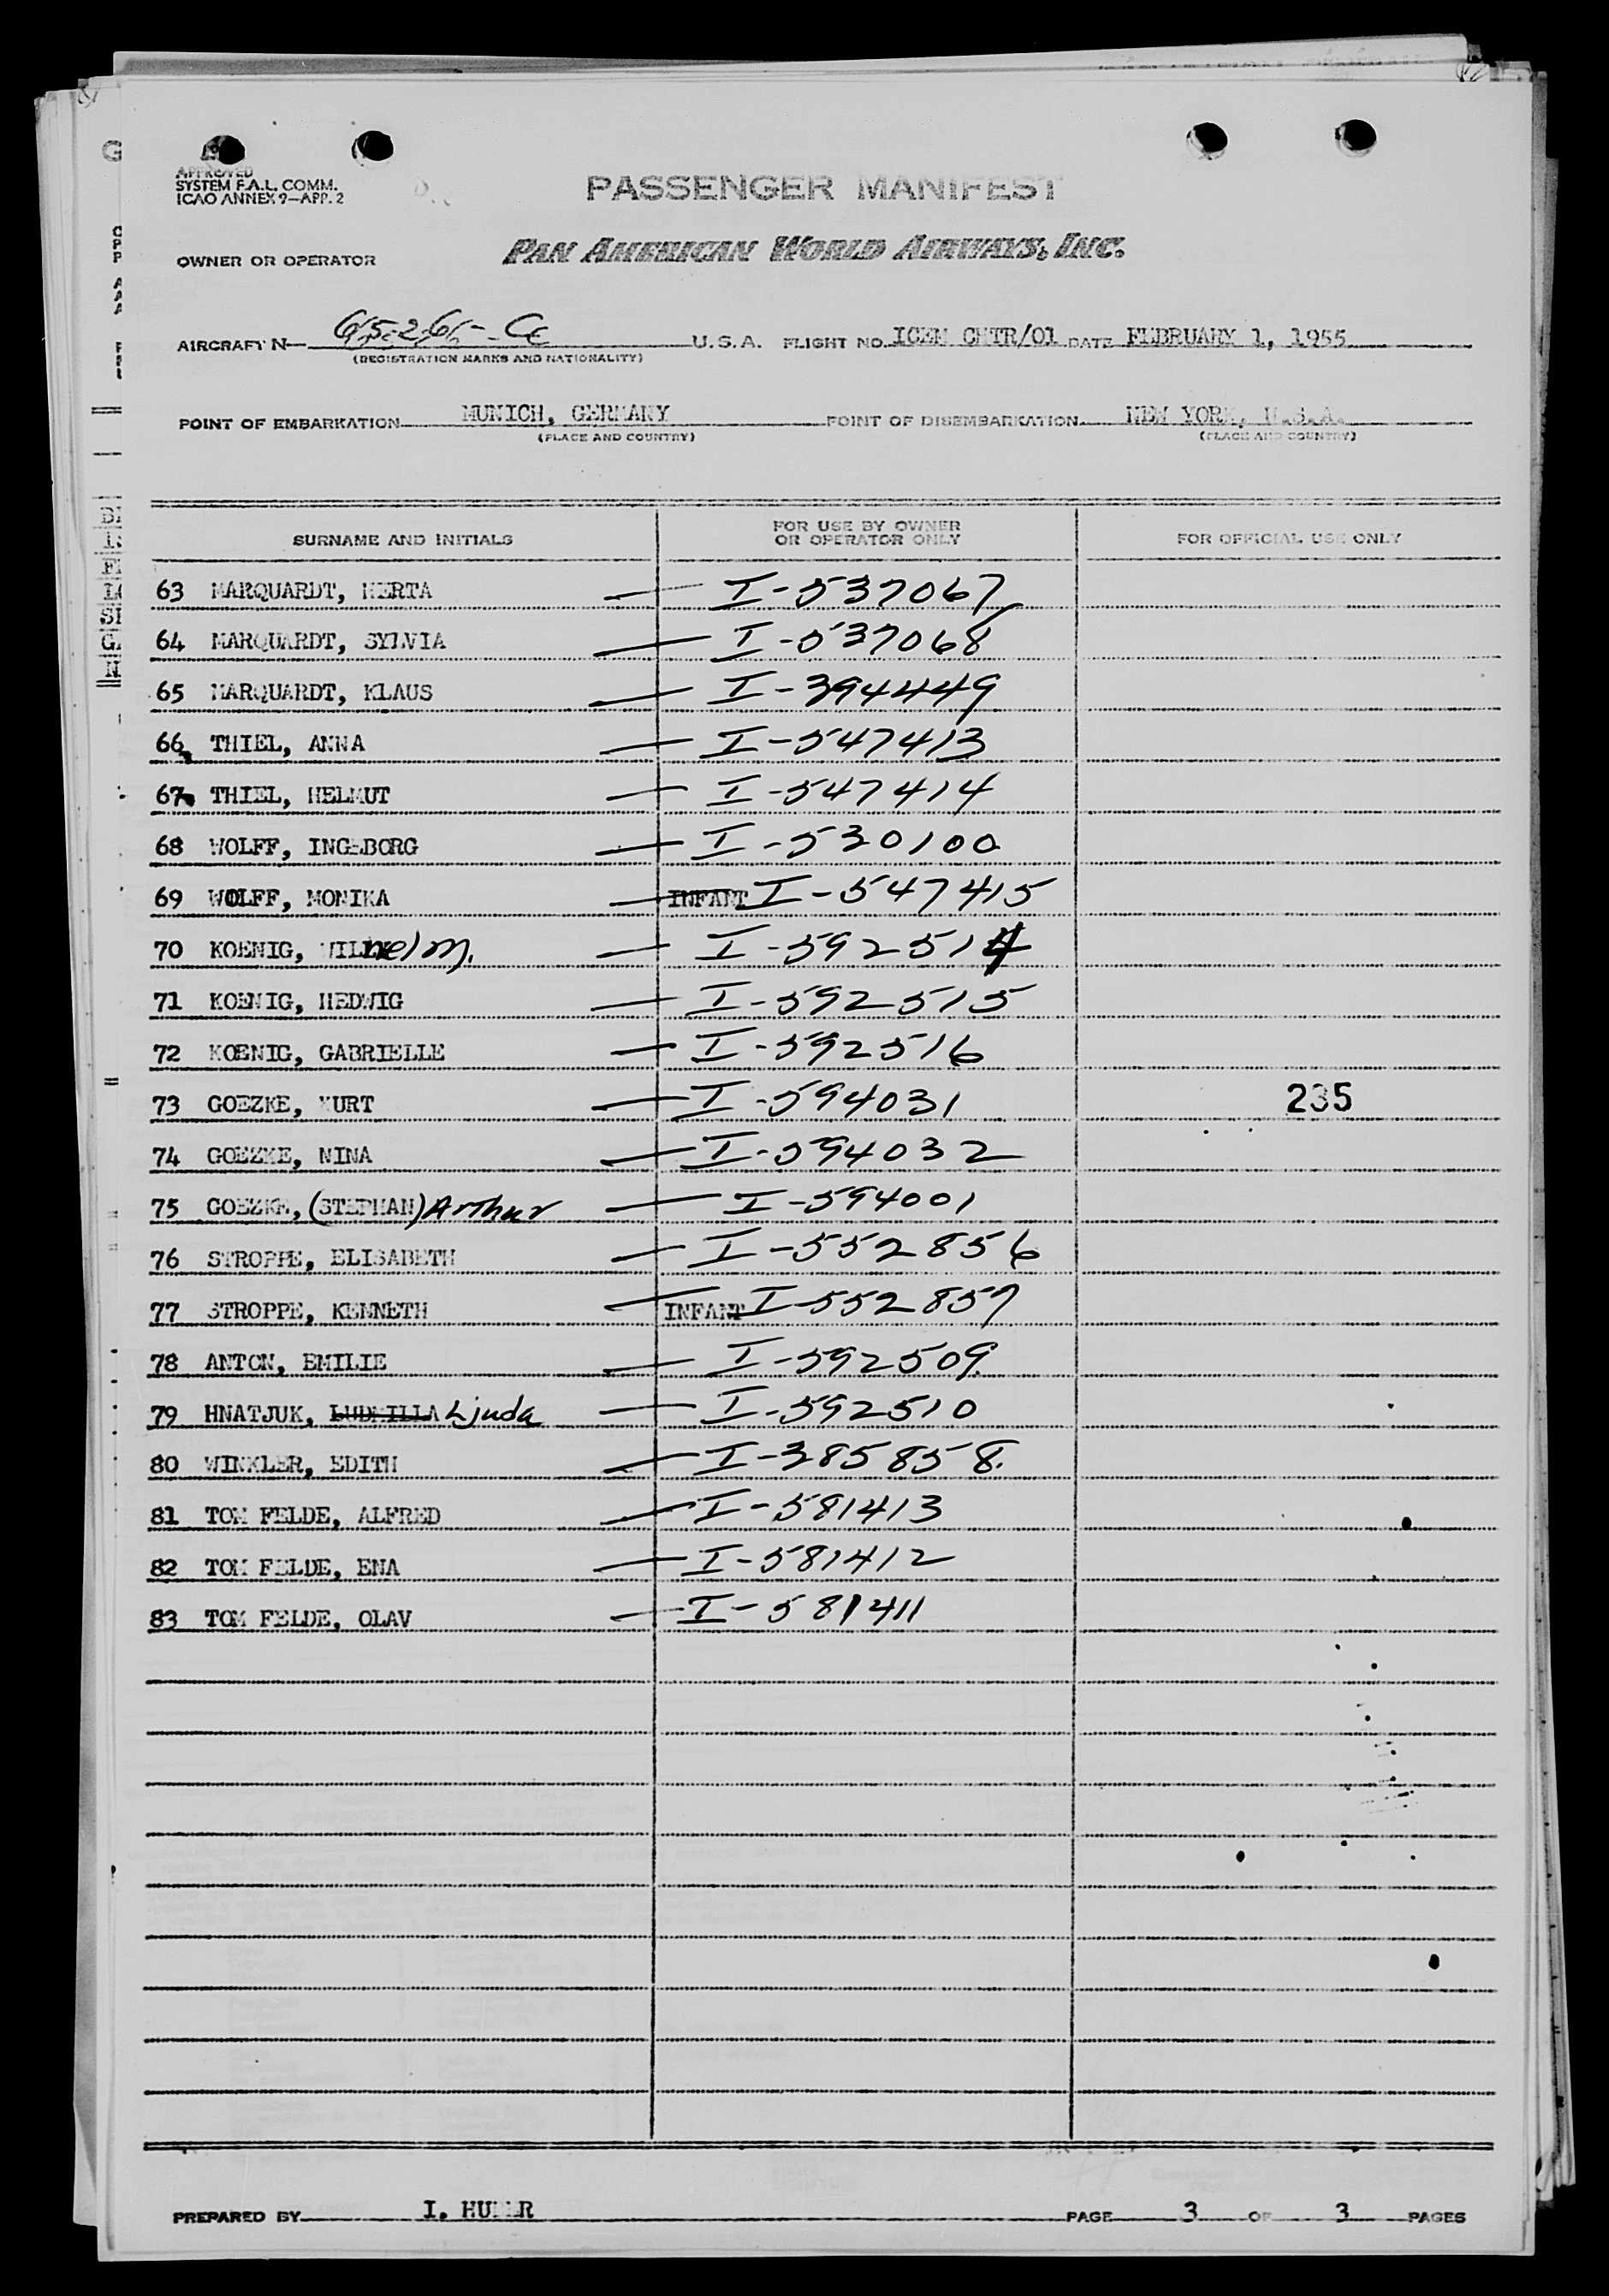 APPROVED
SYSTEM F.A.L. COMM.
ICAO ANNEX 9—APP. 2
PASSENGER MANIFEST
OWNER OR OPERATOR PAN AMERICAN WORLD AIRWAYS, INC.
AIRCRAFT N— U.S.A. FLIGHT NO. ICEM CHTR/01 DATE FEBRUARY 1, 1955
(REGISTRATION MARKS AND NATIONALITY)
POINT OF EMBARKATION MUNICH, GERMANY POINT OF DISEMBARKATION NEW YORK, U.S.A.
(PLACE AND COUNTRY) (PLACE AND COUNTRY)
SURNAME AND INITIALS FOR USE BY OWNER OR OPERATOR ONLY FOR OFFICIAL USE ONLY
63 MARQUARDT, HERTA — I-537067
64 MARQUARDT, SYLVIA — I-537068
65 MARQUARDT, KLAUS — I-394449
66 THIEL, ANNA — I-547413
67 THIEL, HELMUT — I-547414
68 WOLFF, INGEBORG — I-530100
69 WOLFF, MONIKA — INFANT I-547415
70 KOENIG, WILhelm. — I-592514
71 KOENIG, HEDWIG — I-592515
72 KOENIG, GABRIELLE — I-592516
73 GOEZKE, KURT — I-594031 235
74 GOEZKE, NINA — I-594032
75 GOEZKE, (STEPHAN) Arthur — I-594001
76 STROPPE, ELISABETH — I-552856
77 STROPPE, KENNETH — INFANT I-552857
78 ANTON, EMILIE — I-592509
79 HNATJUK, LUDMILLA Ljuda — I-592510
80 WINKLER, EDITH — I-385858.
81 TOM FELDE, ALFRED — I-581413
82 TOM FELDE, ENA — I-581412
83 TOM FELDE, OLAV — I-581411
PREPARED BY I. HUBER PAGE 3 OF 3 PAGES